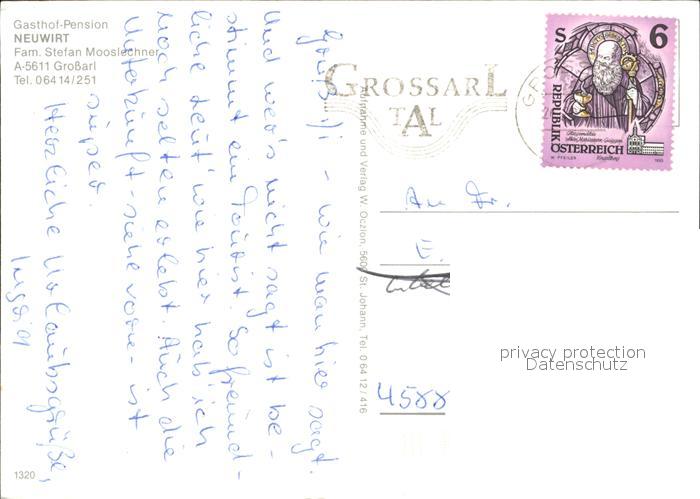 Gasthof-Pension
NEUWIRT
Fam. Stefan Mooslechner
A-5611 Großarl
Tel. 06414/251
- wie man hier sagt.
Und wer's nicht sagt ist be-
stimmt ein Tourist. So freund-
liche Leut' wie hier hab' ich
noch selten erlebt. Auch die
Unterkunft - siehe vorne - ist
super.
Herzliche Urlaubsgrüße,
Ingrid
1320
Aufnahme und Verlag W. Oczlon, 5600 St. Johann, Tel. 06412/416
GROSSARL
TAL
S 6
REPUBLIK
ÖSTERREICH
W. PFEILER
1993
An Fr.
E.
4588
privacy protection
Datenschutz